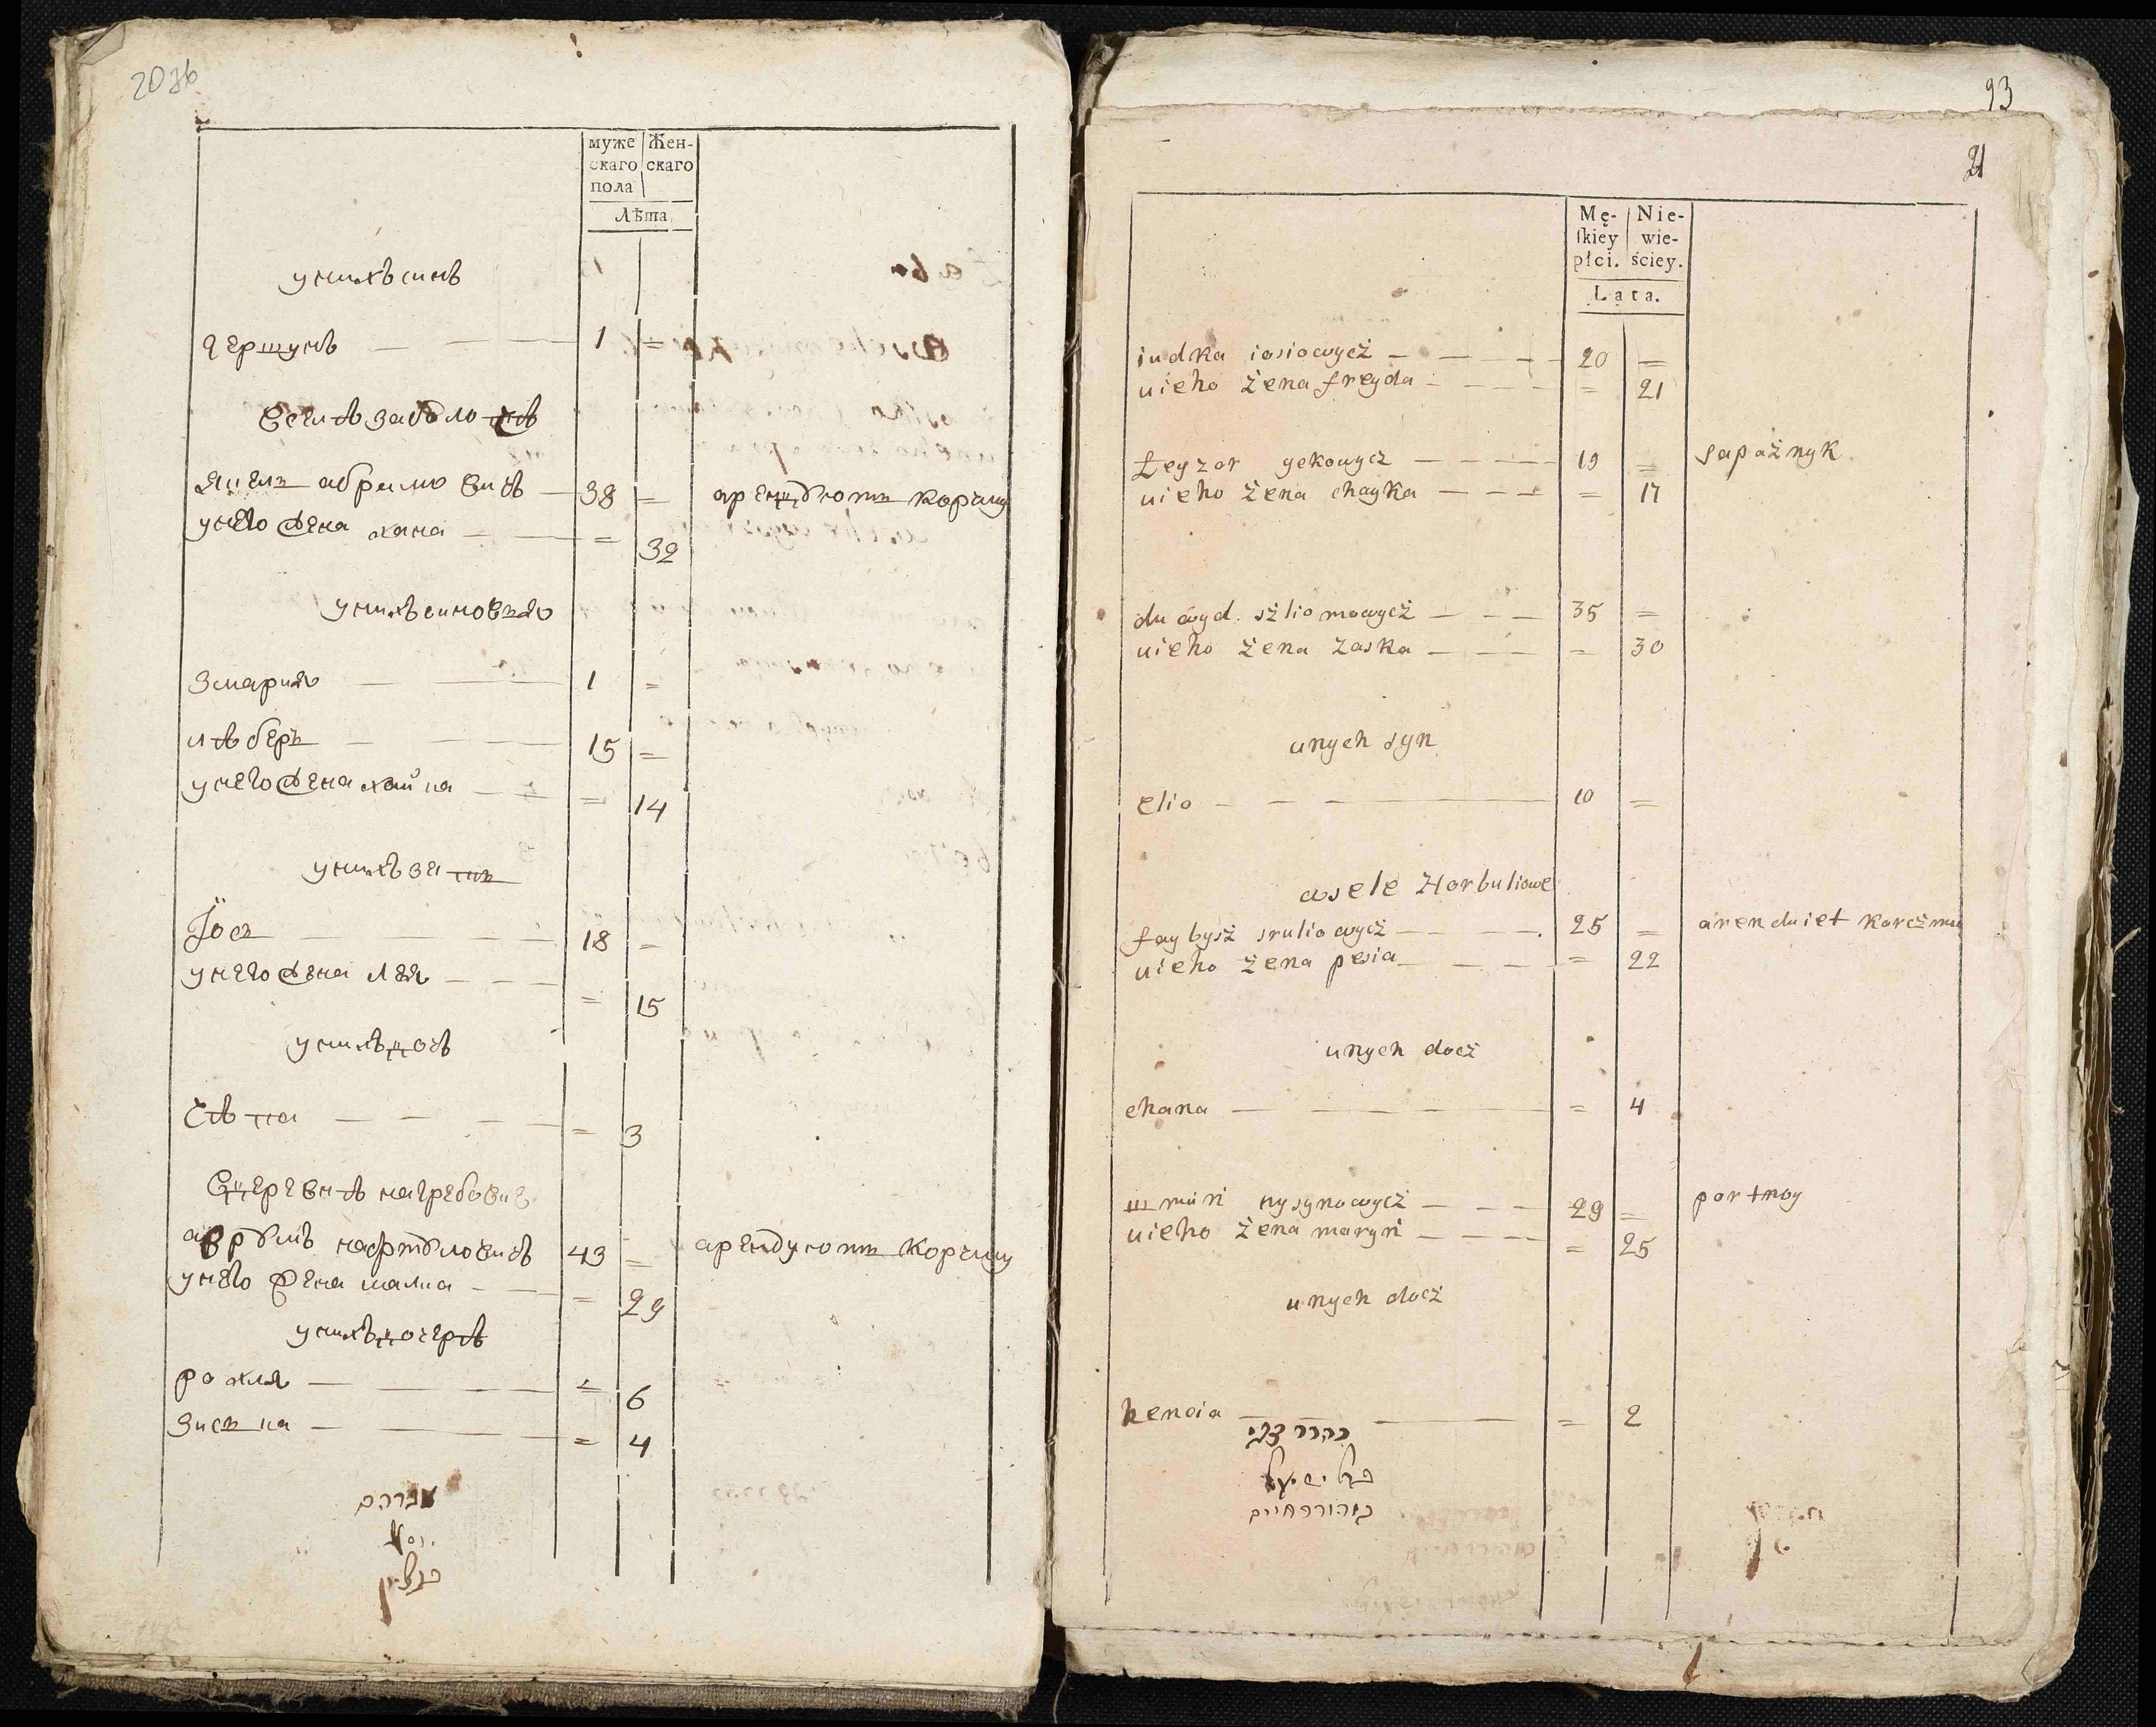 муже
скаго
пола
Жен-
скаго
Лѣта
унихъ синъ
гершунъ — — — 1 =
Вселѣ заболо
абрамовичъ — 38 = арендуютъ корчму
унего жена хана — — = 32
унихъ синовья
Змария — — 1 =
лѣберъ — — 15 =
унего жена хайка — — = 14
унихъ зять
Іось — — — 18 =
унего жена лея — — — = 15
унихъ дочь
— — — — = 3
Вдеревнѣ
аврумъ нафтуловичъ 43 = арендуютъ корчму
унего жена малка — — = 29
унихъ дочерѣ
рохля — — — = 6
Зиська — — — = 4
אברהם
93
21
Mę-
ſkiey
płci.
Nie-
wie-
ściey.
Lata.
iudka iosiowycż — — — 20 =
uieho żena freyda — — — = 21
Leyzor gekowycz — — — 19 = sapażnyk
uieho żena chayka — — — = 17
duwyd. szliomowycż — — — 35 =
uieho żena zaska — — — = 30
unych syn
elio — — — 10 =
wsele Horbuliowe
faybysż sruliowycż — — — 25 = arenduiet korcżmu
uieho żena pesia — — — = 22
unych docż
chana — — — = 4
nysynowycż — — — 29 = portnoy
uieho żena maryń — — — = 25
unych docż
henoia — — — = 2